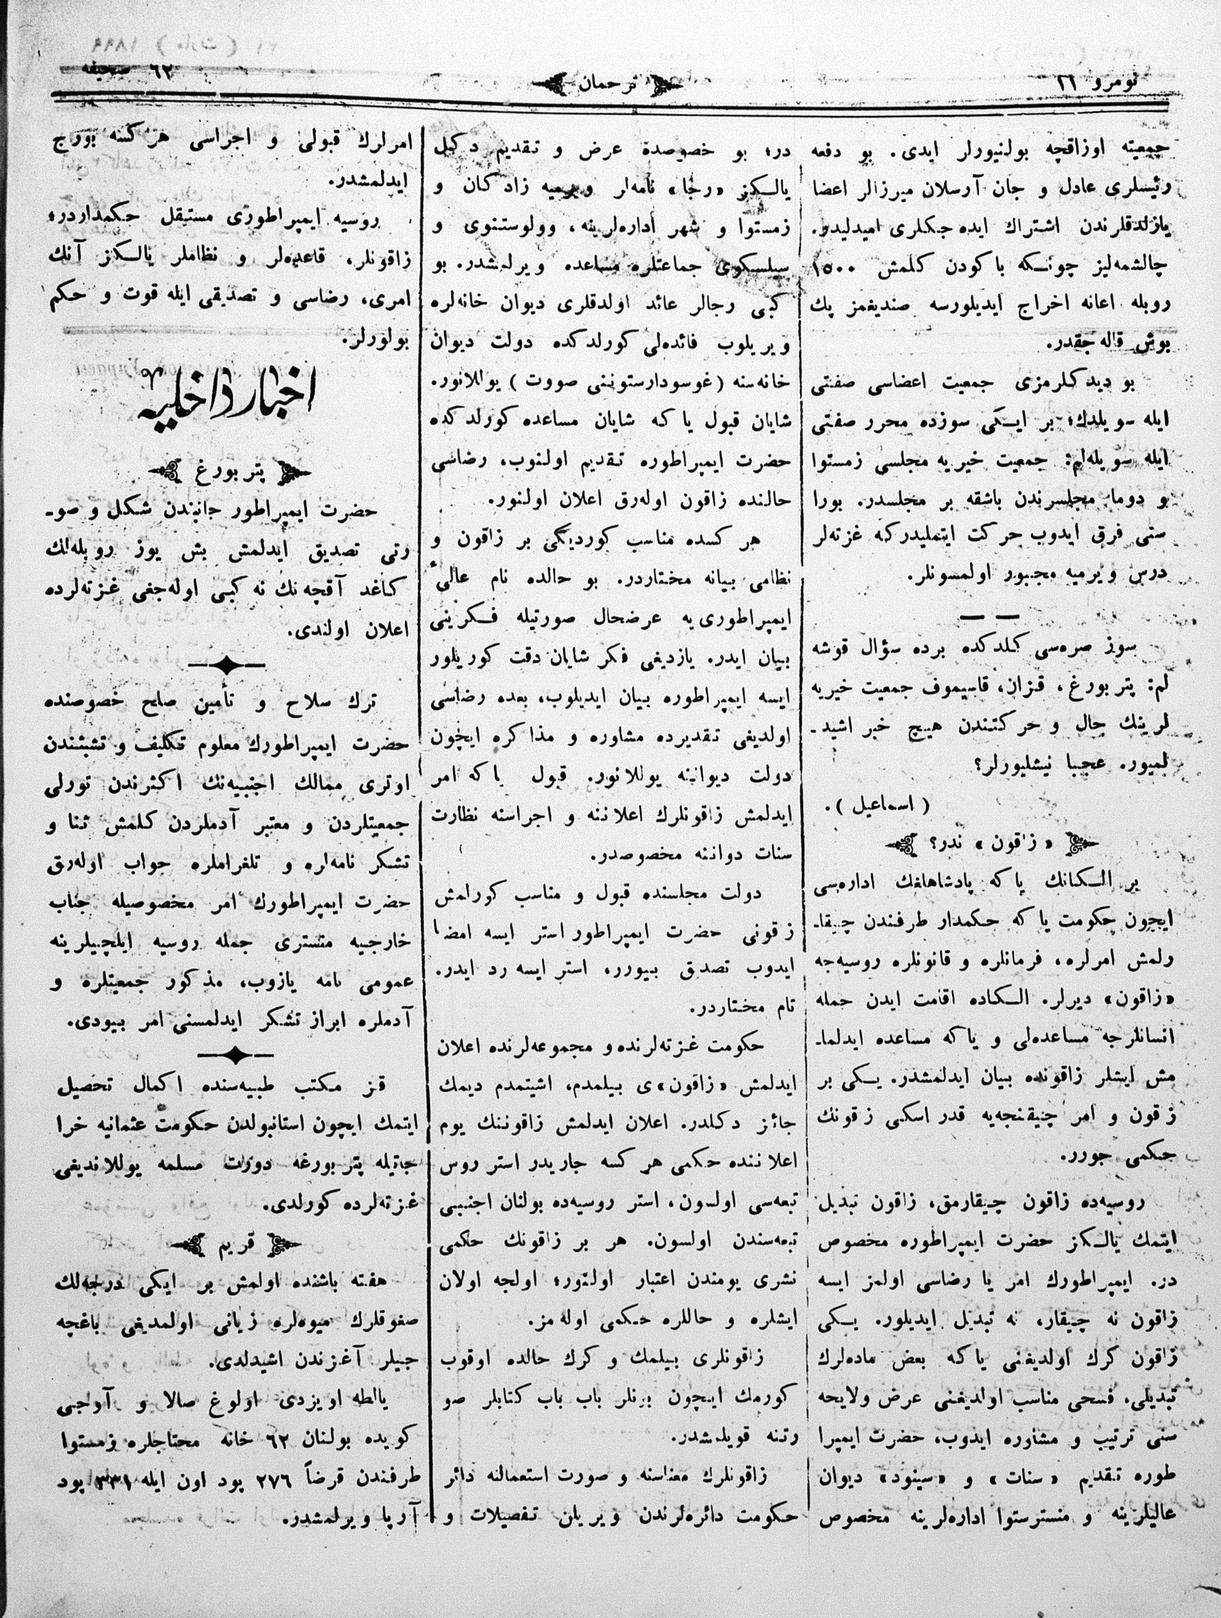 نومرو ١٦
ترجمان
٦٢ صحیفه
جمعیته اوزاقچه بولنیورلر ایدی. بو دفعه
رئیسلری عادل و جان آرسلان میرزالر اعضا
یازلدقلرندن اشتراك ایده جكلری امیدلیدر.
چالشمه‌لیز چونسكه باكودن كلمش ١٥٠٠
روبله اعانه اخراج ایدیلورسه صندیغمز پك
بوش قاله‌جقدر.
بو دیدكلرمزی جمعیت اعضاسی صفتی
ایله سویلدك؛ بر ایكی سوزده محرر صفتی
ایله سویله‌لم: جمعیت خیریه مجلسی زمستوا
و دوما مجلسرندن باشقه بر مجلسدر. بورا
سنی فرق ایدوب حركت ایتملیدركه غزته‌لر
درس ویرمیه مجبور اولمسونلر.
سوز صره‌سی كلدكده برده سؤال قوشه
لم: پتربورغ، قزان، قاسیموف جمعیت خیریه
لرینك حال و حركتندن هیچ خبر اشید-
لمیور. عجبا نیشلیورلر؟
( اسماعیل ).
« زاقون » ندر؟
بر السكانك یا كه پادشاهلغك اداره‌سی
ایچون حكومت یا كه حكمدار طرفندن چیقا-
رلمش امرلره، فرمانلره و قانونلره روسیه‌جه
«زاقون» دیرلر. السكاده اقامت ایدن جمله
انسانلرجه مساعده‌لی و یاكه مساعده ایدلما-
مش ایشلر زاقونده بیان ایدلمشدر. یكی بر
زقون و امر چیقنجه‌یه قدر اسكی زقونك
حكمی جورر.
روسیه‌ده زاقون چیقارمق، زاقون تبدیل
ایتمك یالكز حضرت ایمپراطوره مخصوص
در. ایمپراطورك امر یا رضاسی اولمز ایسه
زاقون نه چیقار، نه تبدیل ایدیلور. یكی
زاقون كرك اولدیغنی یا كه بعض ماده‌لرك
تبدیلی، فسحی مناسب اولدیغنی عرض ولایحه
سنی ترتیب و مشاوره ایدوب، حضرت ایمپرا
طوره تقدیم «سنات» و «سینود» دیوان
عالیلرینه و منسترستوا اداره‌لرینه مخصوص
در؛ بو خصوصده عرض و تقدیم دكل
یالكز «رجا» نامه‌لر ویرمیه زادكان و
زمستوا و شهر اداره‌لرینه، وولوستنوی و
سیلسكوی جماعتلره مساعده ویرلمشدر. بو
كبی رجالر عائد اولدقلری دیوان خانه‌لره
ویریلوب فائده‌لی كورلدكده دولت دیوان
خانه‌سنه (غوسودارستوننی صووت) یوللانور.
شایان قبول یا كه شایان مساعده كورلدكده
حضرت ایمپراطوره تقدیم اولنوب، رضاسی
حالنده زاقون اوله‌رق اعلان اولنور.
هر كسده مناسب كوردیكی بر زاقون و
نظامی بیانه مختاردر. بو حالده نام عالیء
ایمپراطوری‌یه عرضحال صورتیله فكرینی
بیان ایدر. یازدیغی فكر شایان دقت كوریلور
ایسه ایمپراطوره بیان ایدیلوب، بعده رضاسی
اولدیغی تقدیرده مشاوره و مذاكره ایچون
دولت دیواننه یوللانور. قبول یا كه امر
ایدلمش زاقونلرك اعلاننه و اجراسنه نظارت
سنات دواننه مخصوصدر.
دولت مجلسنده قبول و مناسب كورلمش
زقونی حضرت ایمپراطور استر ایسه امضا
ایدوب تصدیق بیورر، استر ایسه رد ایدر.
تام مختاردر.
حكومت غزته‌لرنده و مجموعه‌لرنده اعلان
ایدلمش «زاقون»ی بیلمدم، اشیتمدم دیمك
جائز دكلدر. اعلان ایدلمش زاقوننك یوم
اعلاننده حكمی هر كسه جاریدر استر روس
تبعه‌سی اولسون، استر روسیه‌ده بولنان اجنبی
تبعه‌سندن اولسون. هر بر زاقونك حكمی
نشری یومندن اعتبار اولنور؛ اولجه اولان
ایشلره و حاللره حكمی اوله‌مز.
زاقونلری بیلمك و كرك حالده اوقوب
كورمك ایچون برنلر باب باب كتابلر صو
رتنه قویلمشدر.
زاقونلرك معناسنه و صورت استعمالنه دائر
حكومت دائره‌لرندن ویریلن تفصیلات و
امرلرك قبولی و اجراسی هر كسه بورج
ایدلمشدر.
روسیه ایمپراطوری مستقیل حكمداردر؛
زاقونلر، قاعده‌لر و نظاملر یالكز آنك
امری، رضاسی و تصدیقی ایله قوت و حكم
بولورلر.
اخبار داخلیه
پتربورغ
حضرت ایمپراطور جانبندن شكل و صو-
رتی تصدیق ایدلمش بش یوز روبله‌لك
كاغد آقچه‌نك نه كبی اوله‌جغی غزته‌لرده
اعلان اولندی.
ترك سلاح و تأمین صلح خصوصنده
حضرت ایمپراطورك معلوم تكلیف و تشبثندن
اوتری ممالك اجنبیه‌نك اكثرندن تورلی
جمعیتلردن و معتبر آدملردن كلمش ثنا و
تشكر نامه‌لره و تلغراملره جواب اوله‌رق
حضرت ایمپراطورك امر مخصوصیله جناب
خارجیه منستری جمله روسیه ایلچیلرینه
عمومی نامه یازوب، مذكور جمعیتلره و
آدملره ابراز تشكر ایدلمسنی امر بیودی.
قز مكتب طبیه‌سنده اكمال تحصیل
ایتمك ایچون استانبولدن حكومت عثمانیه خرا
جاتیله پتربورغه دورت مسلمه یوللاندیغی
غزته‌لرده كورلدی.
قریم
هفته باشنده اولمش بر ایكی درجه‌لك
صغوقلرك میوه‌لره زیانی اولمدیغی باغچه
جیلر آغزندن اشیدلدی.
یالطه اویزدی اولوغ صالا و آوجی
كویده بولنان ٦٢ خانه محتاجلره زمستوا
طرفندن قرضاً ٢٧٦ پود اون ایله ٣٣١ پود
آرپا ویرلمشدر.